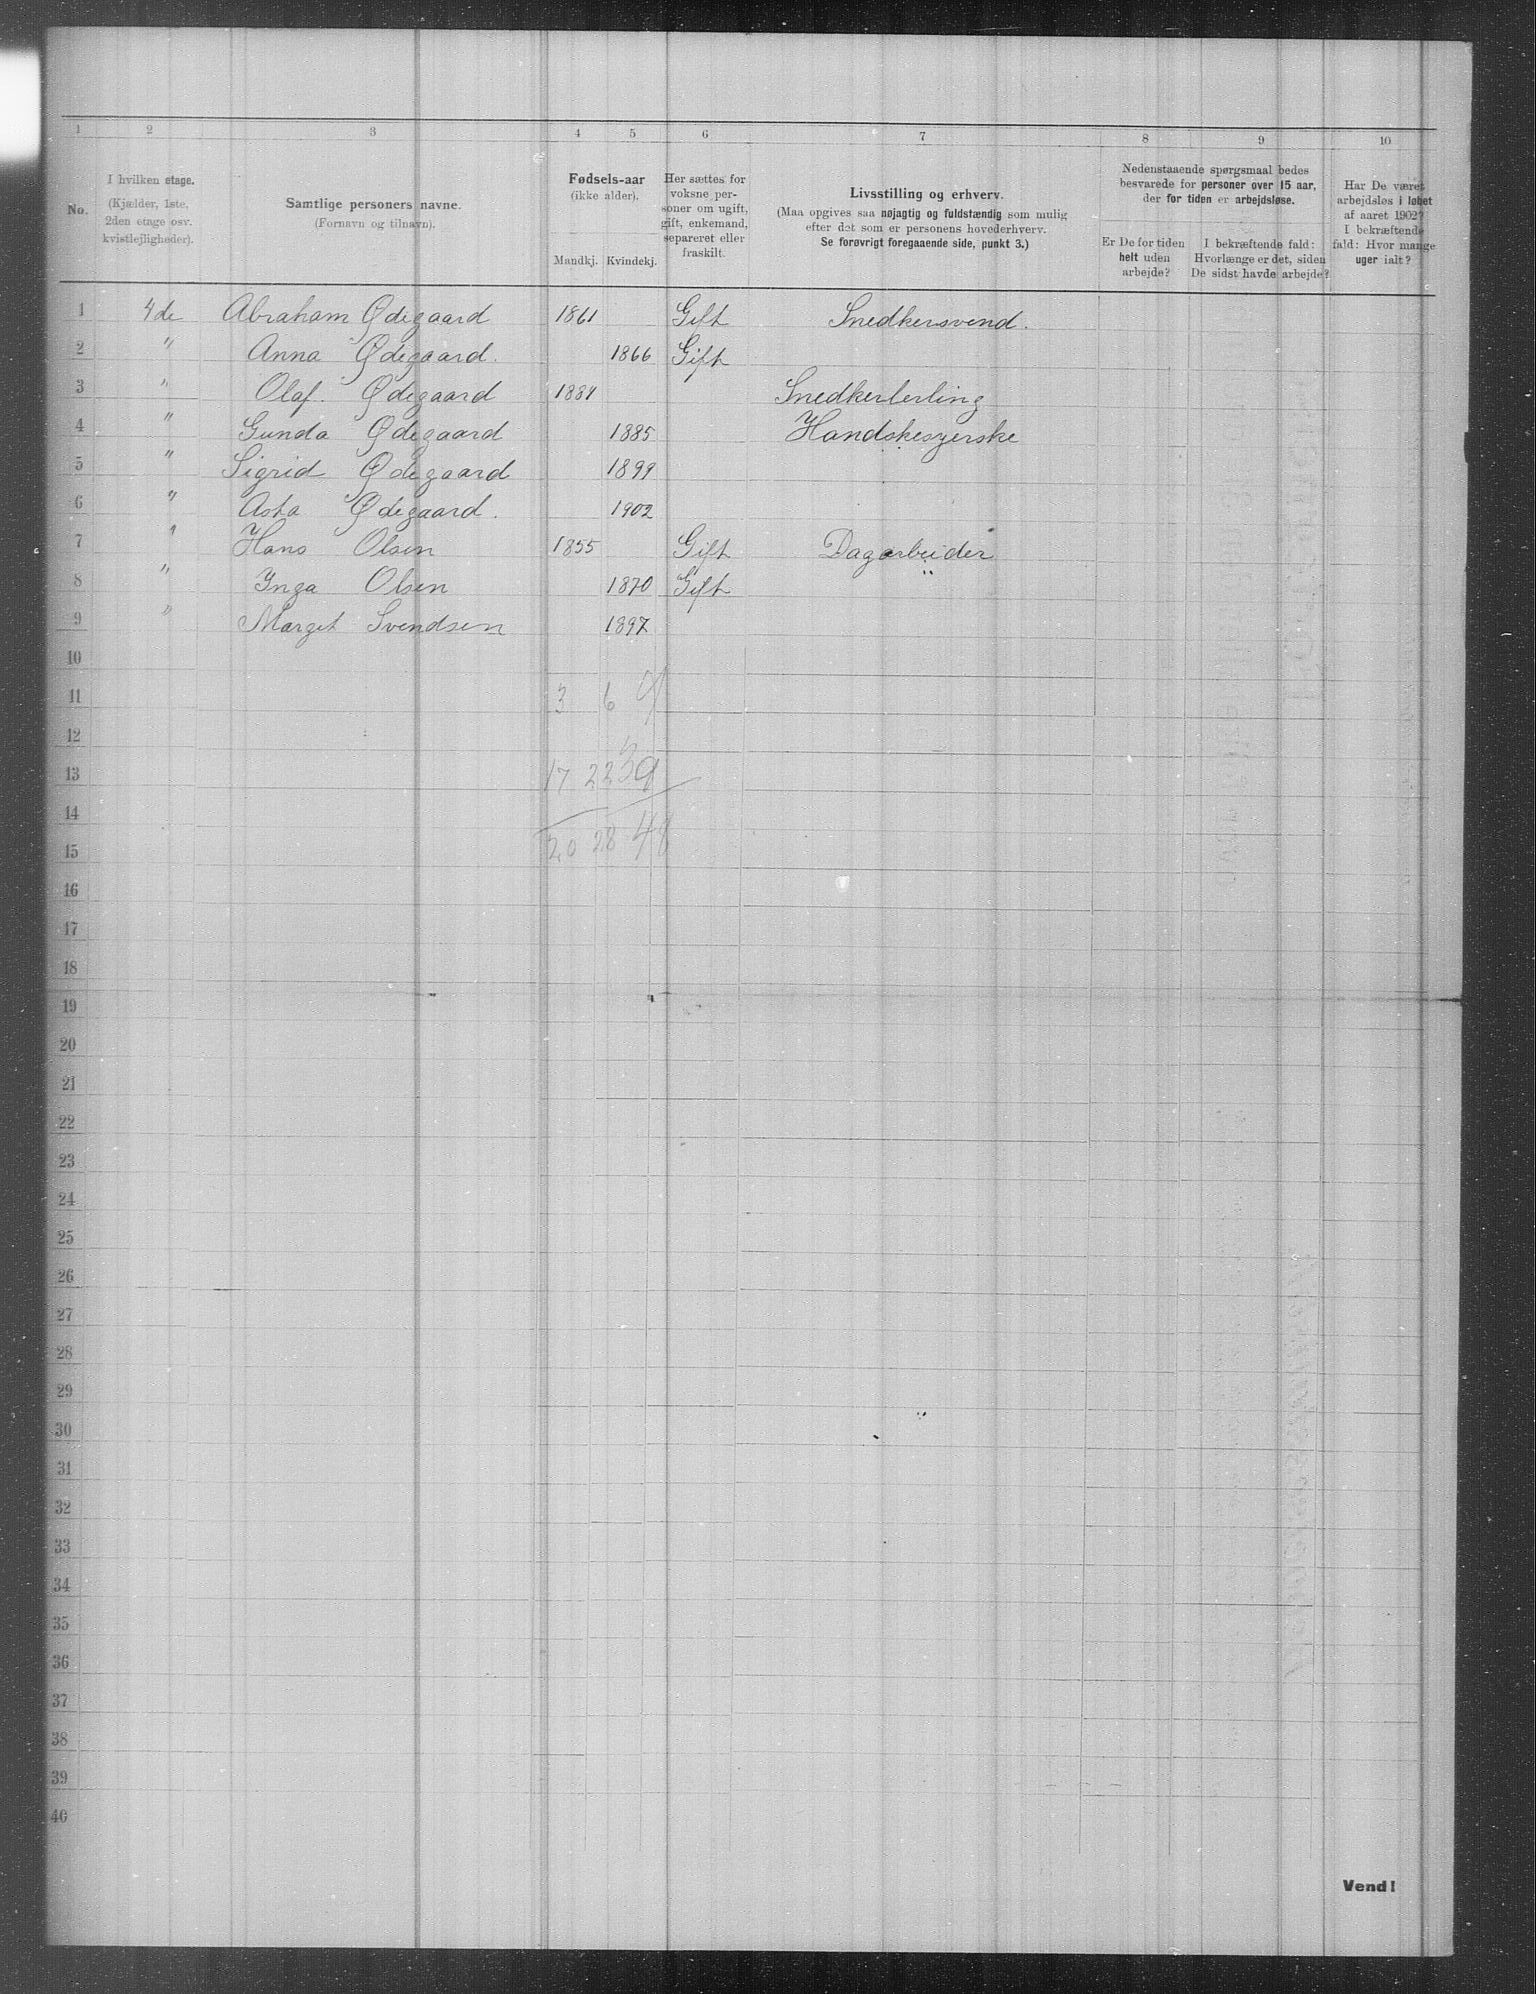 1 2 3 4 5 6 7 8 9 10
No.
I hvilken etage.
(Kjælder, 1ste,
2den etage osv.
kvistlejligheder).
Samtlige personers navne.
(Fornavn og tilnavn).
Fødsels-aar
(ikke alder).
Mandkj. Kvindekj.
Her sættes for
voksne per-
soner om ugift,
gift, enkemand,
separeret eller
fraskilt.
Livsstilling og erhverv.
(Maa opgives saa nøjagtig og fuldstændig som mulig
efter det som er personens hovederhverv.
Se forøvrigt foregaaende side, punkt 3.)
Nedenstaaende spørgsmaal bedes
besvarede for personer over 15 aar,
der for tiden er arbejdsløse.
Er De for tiden
helt uden
arbejde?
I bekræftende fald:
Hvorlænge er det, siden
De sidst havde arbejde?
Har De været
arbejdsløs i løbet
af aaret 1902?
I bekræftende
fald: Hvor mange
uger ialt?
1 4de Abraham Ødegaard 1861 Gift Snedkersvend.
2 " Anna Ødegaard. 1866 Gift
3 " Olaf. Ødegaard 1884 Snedkerlerling
4 " Gunda Ødegaard 1885 Handskesyerske
5 " Sigrid Ødegaard 1899
6 " Asta Ødegaard. 1902
7 " Hans Olsen 1855 Gift Dagarbeider
8 " Inga Olsen 1870 Gift
9 " Marget Svendsen 1897
10
11 3 6 9
12
13 17 22 39
14
15 20 28 48
16
17
18
19
20
21
22
23
24
25
26
27
28
29
30
31
32
33
34
35
36
37
38
39
40
Vend!